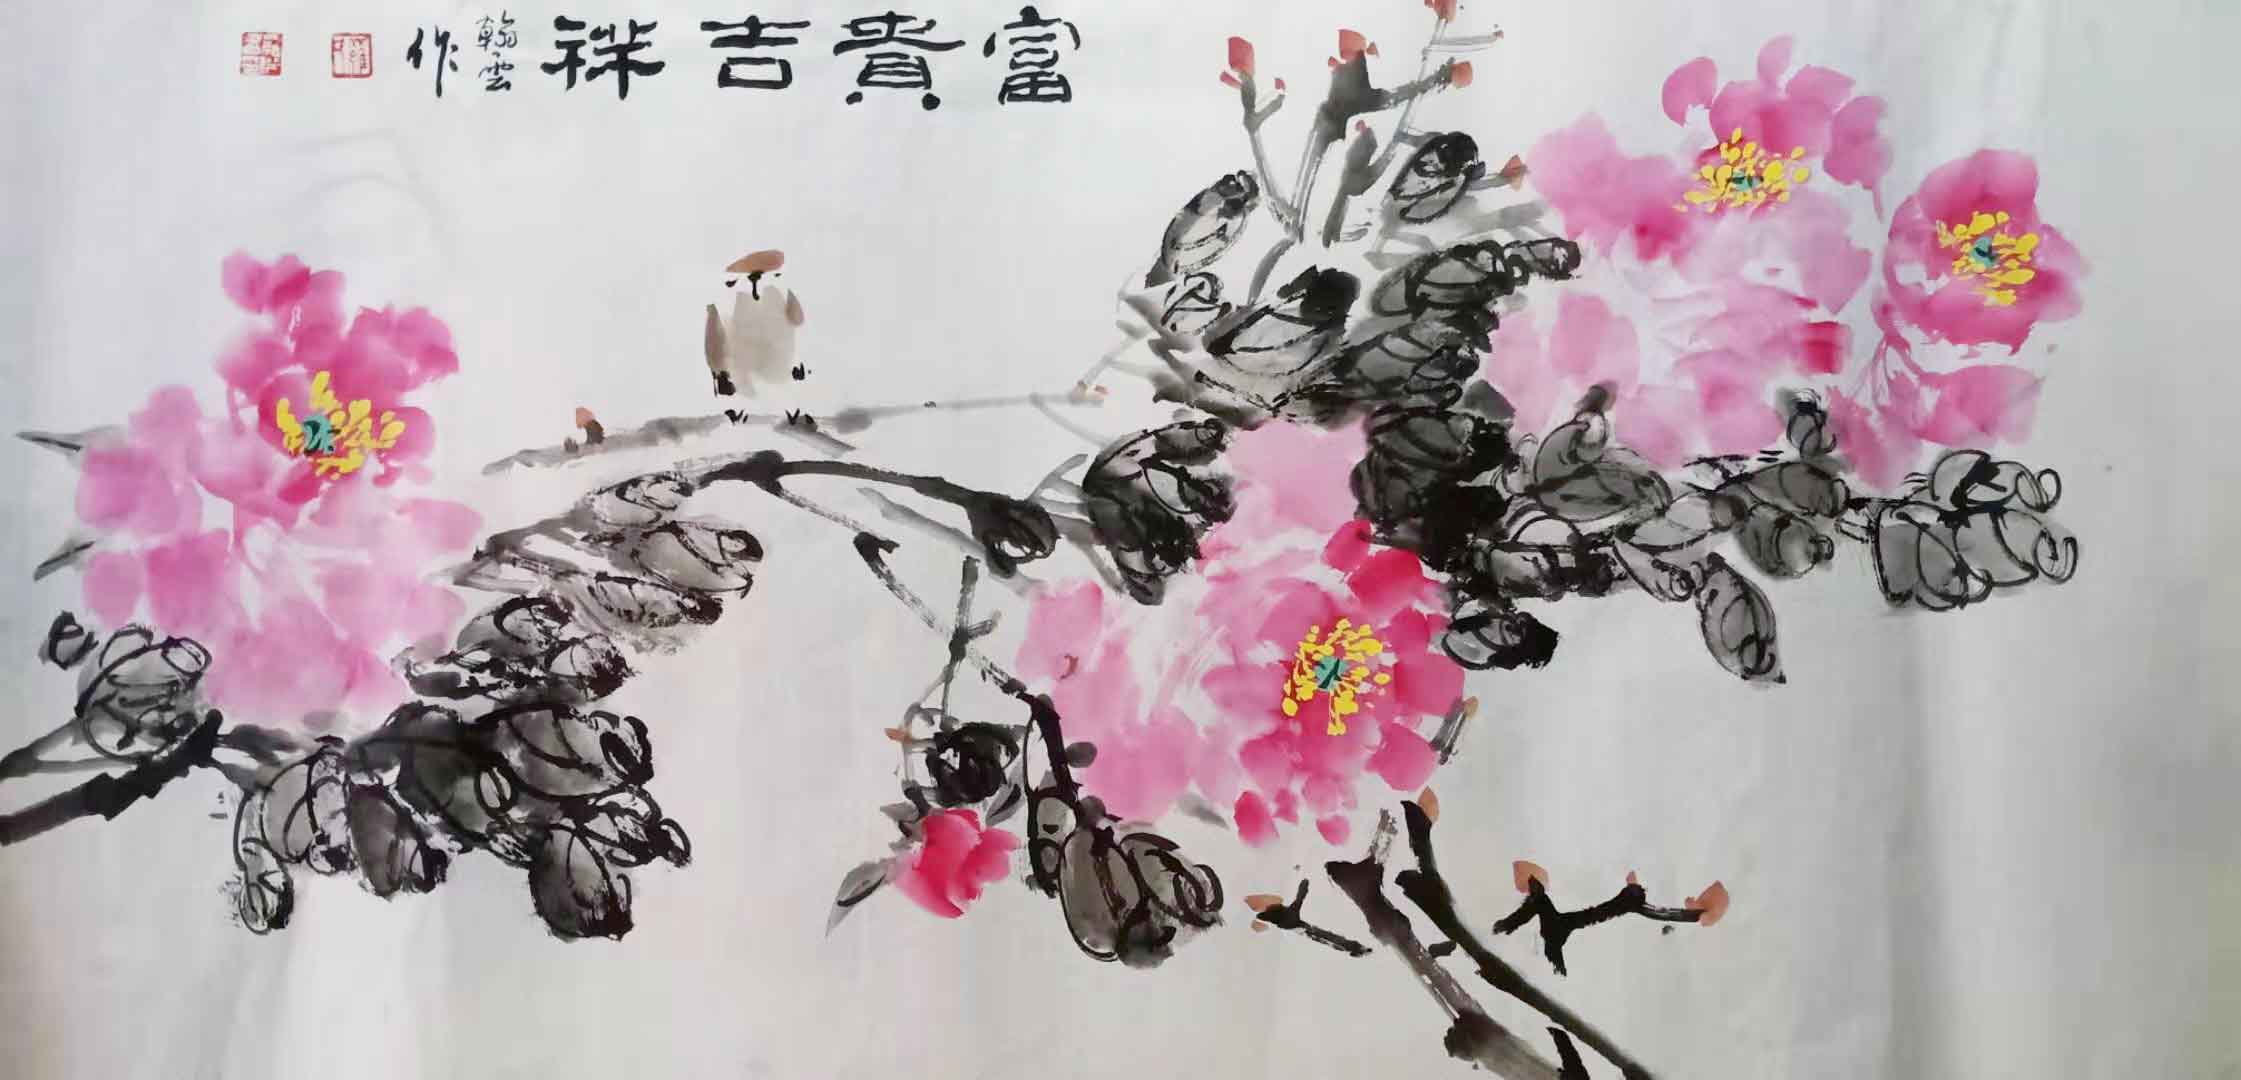 富貴吉祥
翰雲
作